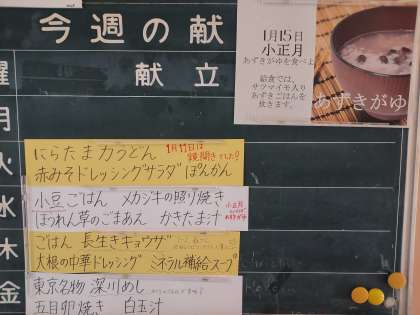 今週の献
献立
曜
月
火
水
木
金
1月15日
小正月
あずきがゆを食べよ
給食では、
サツマイモ入り
あずきごはんを
炊きます。
あずきがゆ
にらたま力うどん
1月11日は
鏡開きでした!
赤みそドレッシングサラダ ぽんかん
小豆ごはん メカジキの照り焼き
ほうれん草のごまあえ かきたま汁
小正月
ごはん 長生きギョウザ
大根の中華ドレッシング ミネラル補給スープ
東京名物 深川めし
五目卵焼き 白玉汁